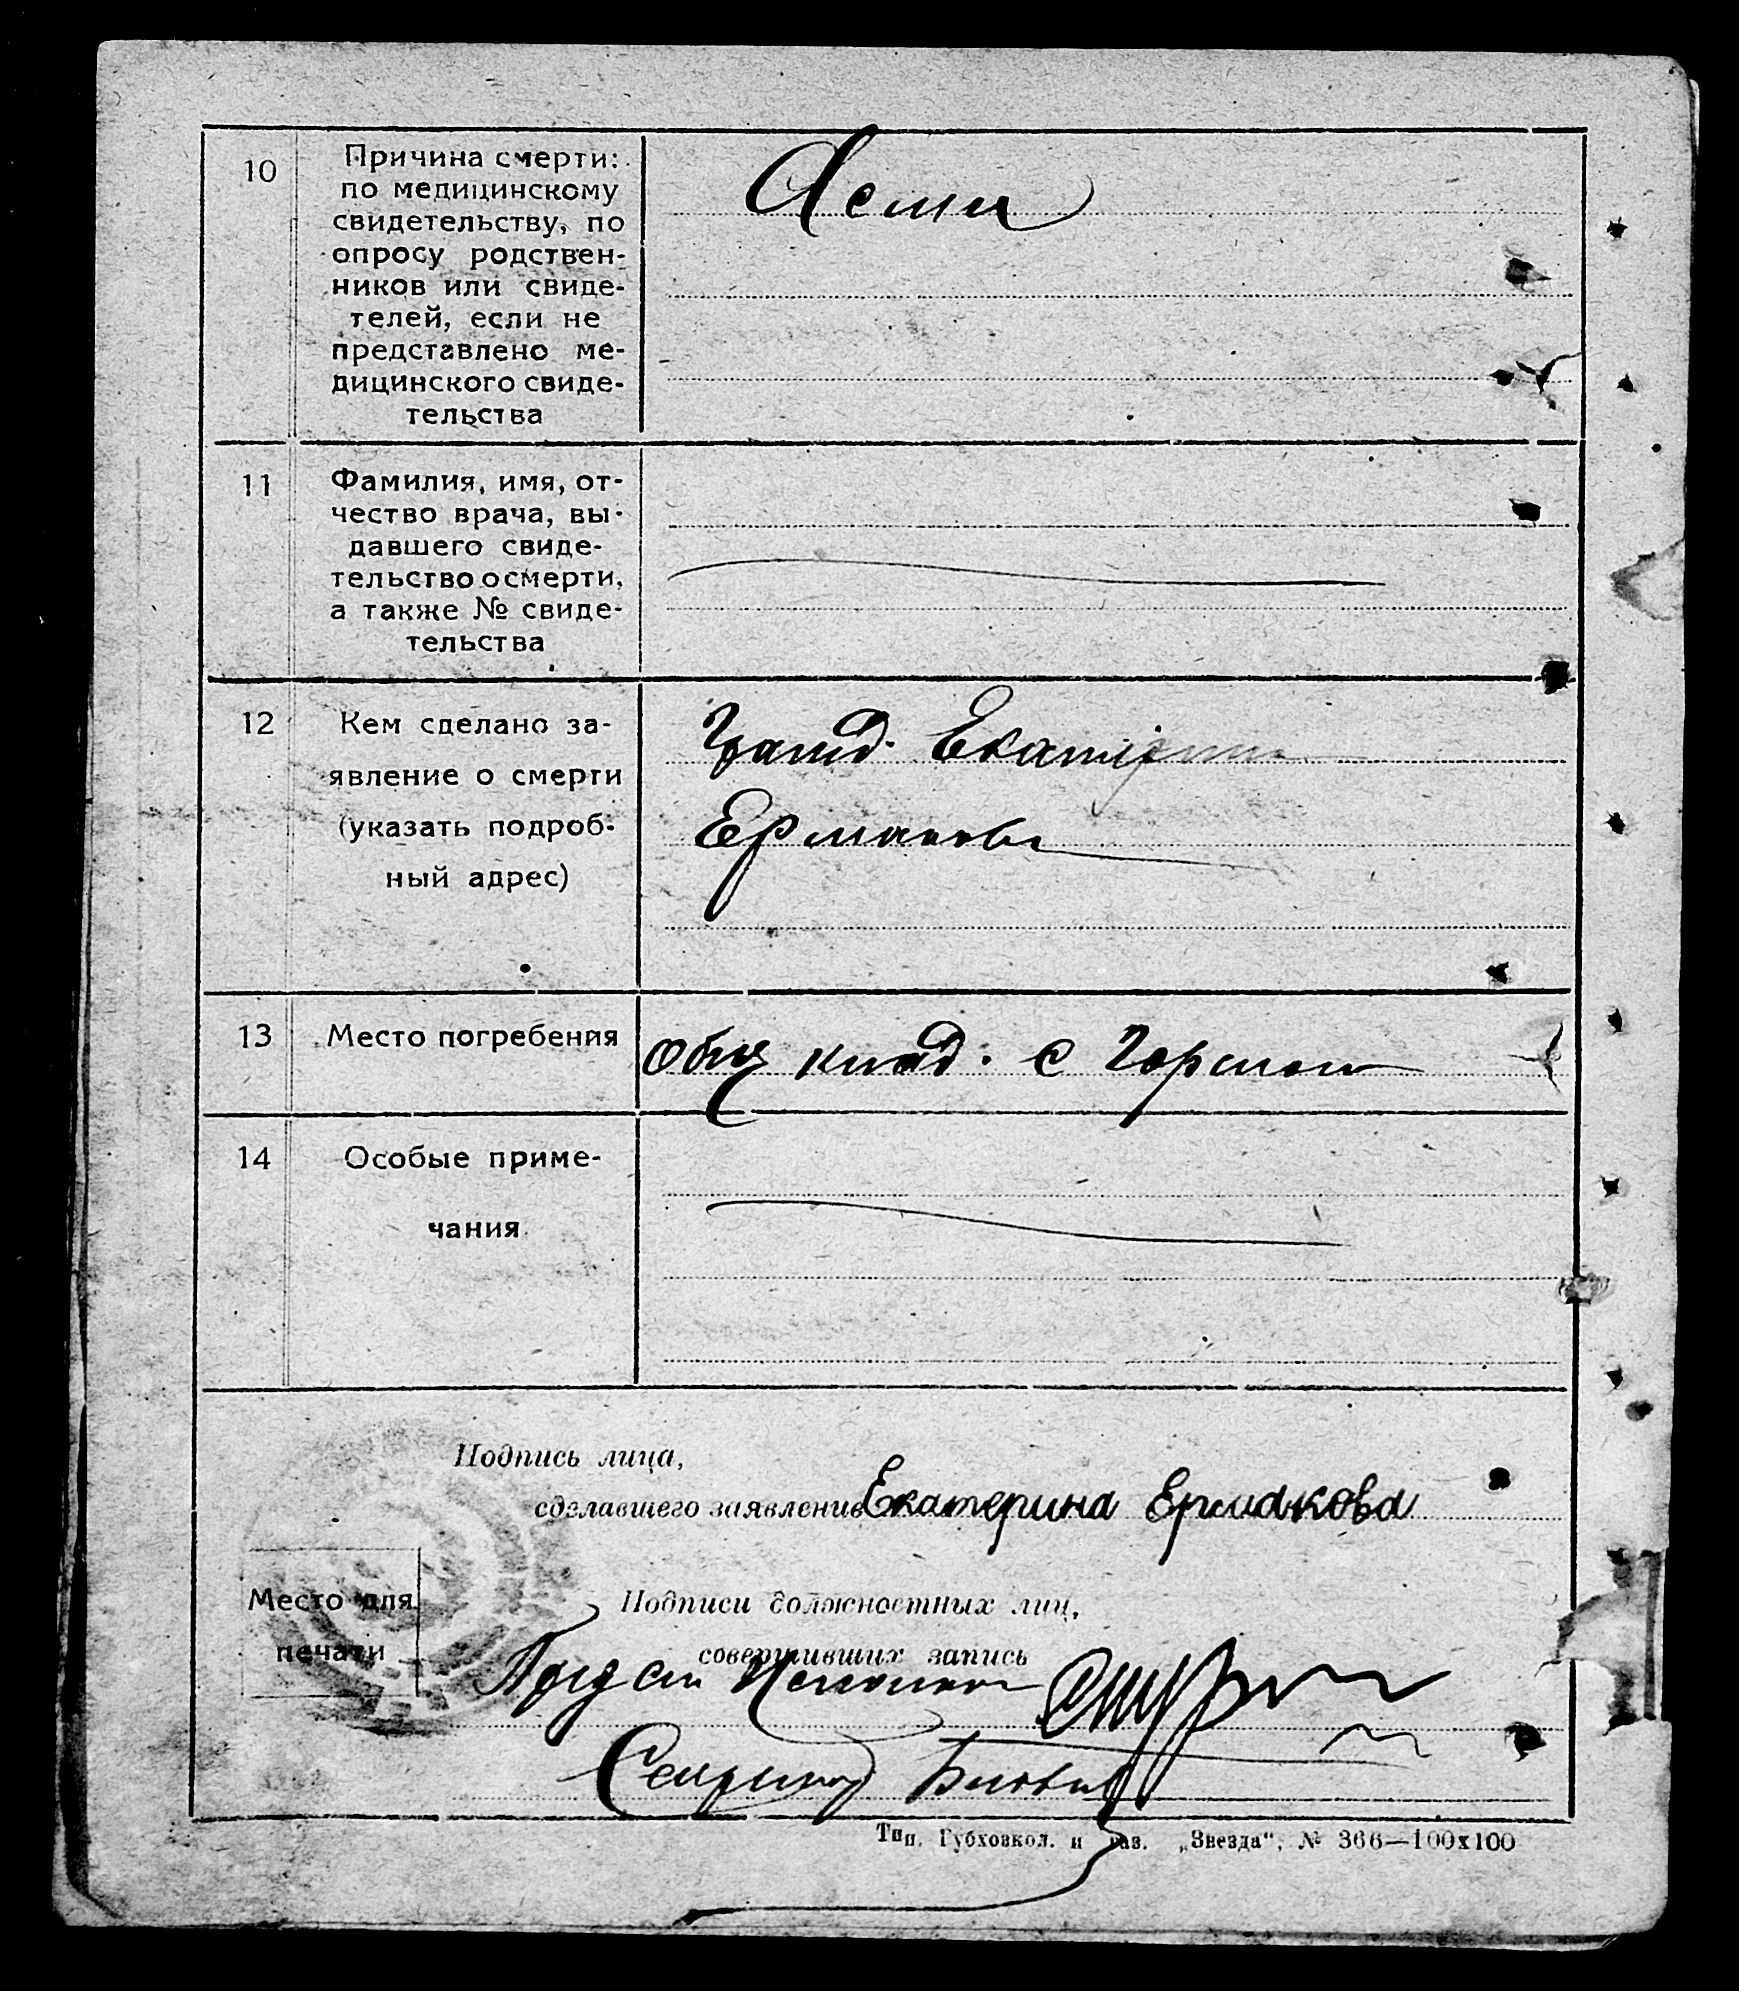 10
Причина смерти:
по медицинскому
свидетельству, по
опросу родствен-
ников или свиде-
телей, если не
представлено ме-
дицинского свиде-
тельства
11
Фамилия, имя, от-
чество врача, вы-
давшего свиде-
тельство о смерти,
а также № свиде-
тельства
12
Кем сделано за-
явление о смерти
(указать подроб-
ный адрес)
Гражд. Екатерина
Ермакова
13
Место погребения
Общ клад. с
14
Особые приме-
чания
Подпись лица,
сделавшего заявление Екатерина Ермакова
Место для
печати
Подписи должностных лиц,
совершивших запись
Тип. Губховкол. и газ. „Звезда“, № 366—100х100